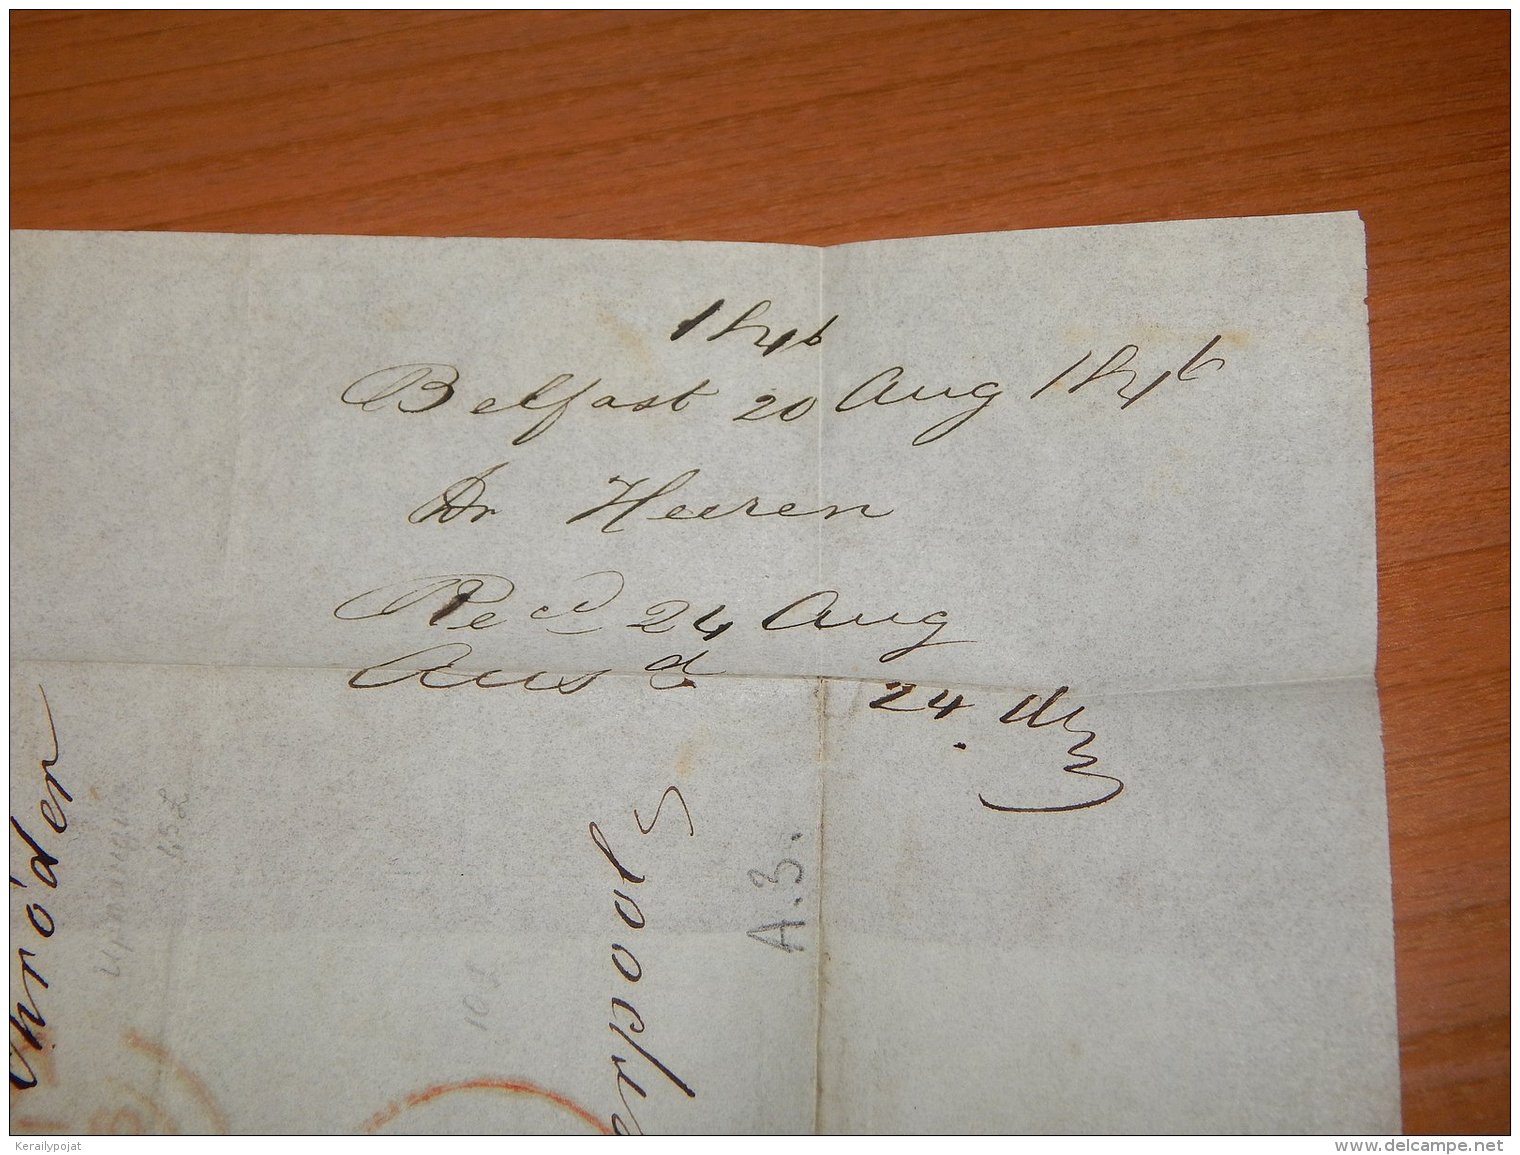 1846
Belfast 20 Aug 1846
Dr Heeren
Recd 24 Aug
Ansd 24. do
hröder
erpool
A.3.
Kerailypojat
delcampe.net